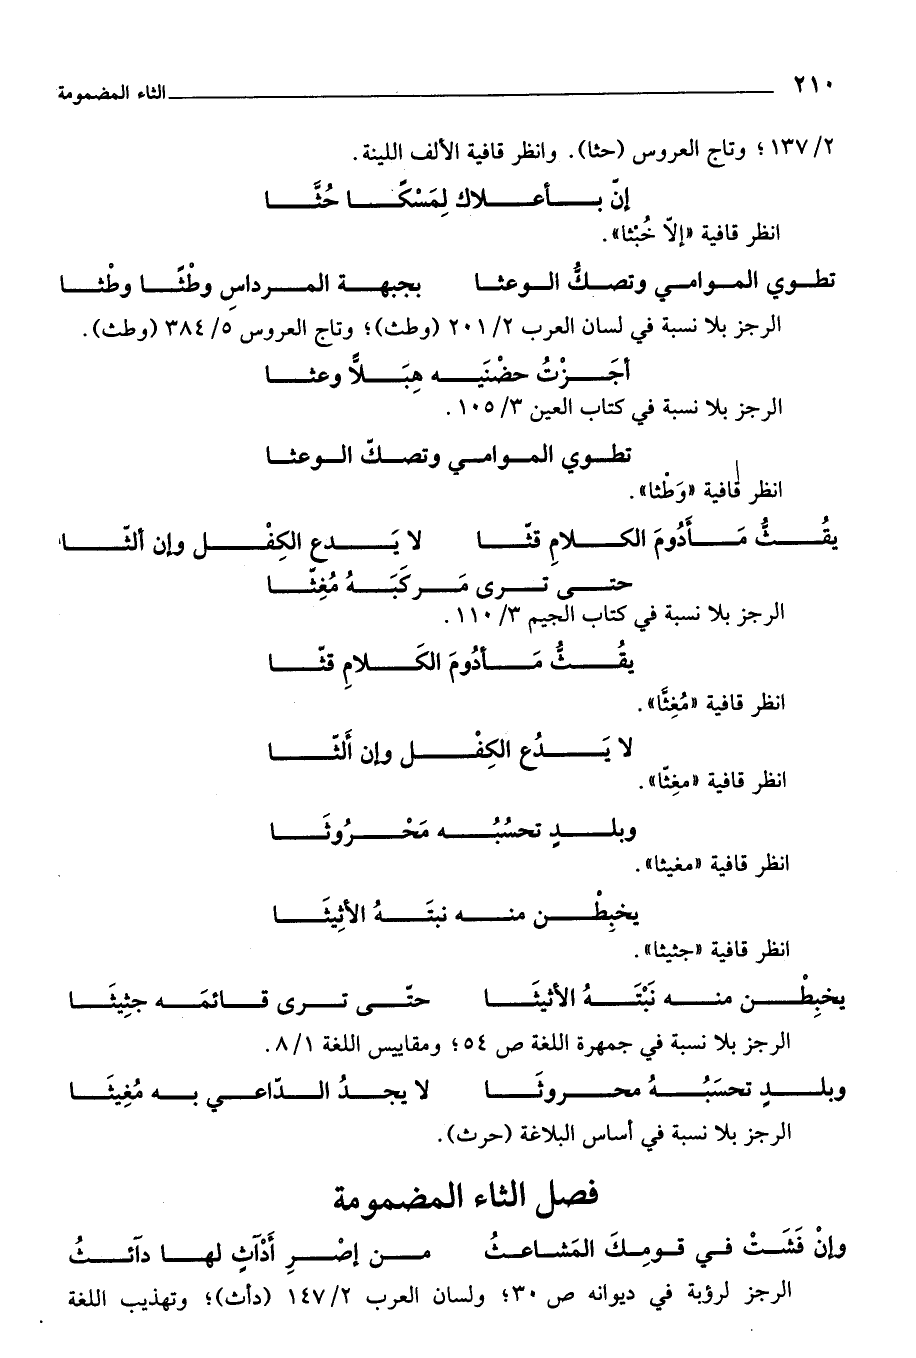 ٢١٠ الثاء المضمومة
١٣٧/٢؛ وتاج العروس (حثا). وانظر قافية الألف اللينة.
إنّ بأعلاك لِمَسْكًا حُثَّا
انظر قافية «إلاّ خُبْثا».
تطوي الموامي وتصكُّ الوعثا بجبهة المرداسِ وطْثًا وطْثا
الرجز بلا نسبة في لسان العرب ٢٠١/٢ (وطث)؛ وتاج العروس ٣٨٤/٥ (وطث).
أجَزْتُ حضْنَيه هِبَلاًّ وعثا
الرجز بلا نسبة في كتاب العين ١٠٥/٣.
تطوي الموامي وتصكّ الوعثا
انظر قافية «وَطْثا».
يقُثُّ مَأدُومَ الكلامِ قثّا لا يَدع الكِفْل وإن ألثّا
حتى ترى مَركَبَهُ مُغِثّا
الرجز بلا نسبة في كتاب الجيم ١١٠/٣.
يقُثُّ مَأدُومَ الكَلامِ قثّا
انظر قافية «مُغِثَّا».
لا يَدُع الكِفْل وإن أَلثّا
انظر قافية «مغِثّا».
وبلدٍ تحسُبُه مَحْرُوثَا
انظر قافية «مغيثا».
يخبِطْن منه نبتَهُ الأثِيثَا
انظر قافية «جثيثا».
يخبِطْن منه نَبْتَهُ الأثيثَا حتّى ترى قائمَه جثِيثَا
الرجز بلا نسبة في جمهرة اللغة ص ٥٤؛ ومقاييس اللغة ٨/١.
وبلدٍ تحسَبُهُ محروثَا لا يجدُ الدّاعي به مُغِيثَا
الرجز بلا نسبة في أساس البلاغة (حرث).
فصل الثاء المضمومة
وإنْ فَشَتْ في قومِكَ المَشاعثُ من إصْرِ أَدْآثٍ لها دآئثُ
الرجز لرؤبة في ديوانه ص ٣٠؛ ولسان العرب ١٤٧/٢ (دأث)؛ وتهذيب اللغة